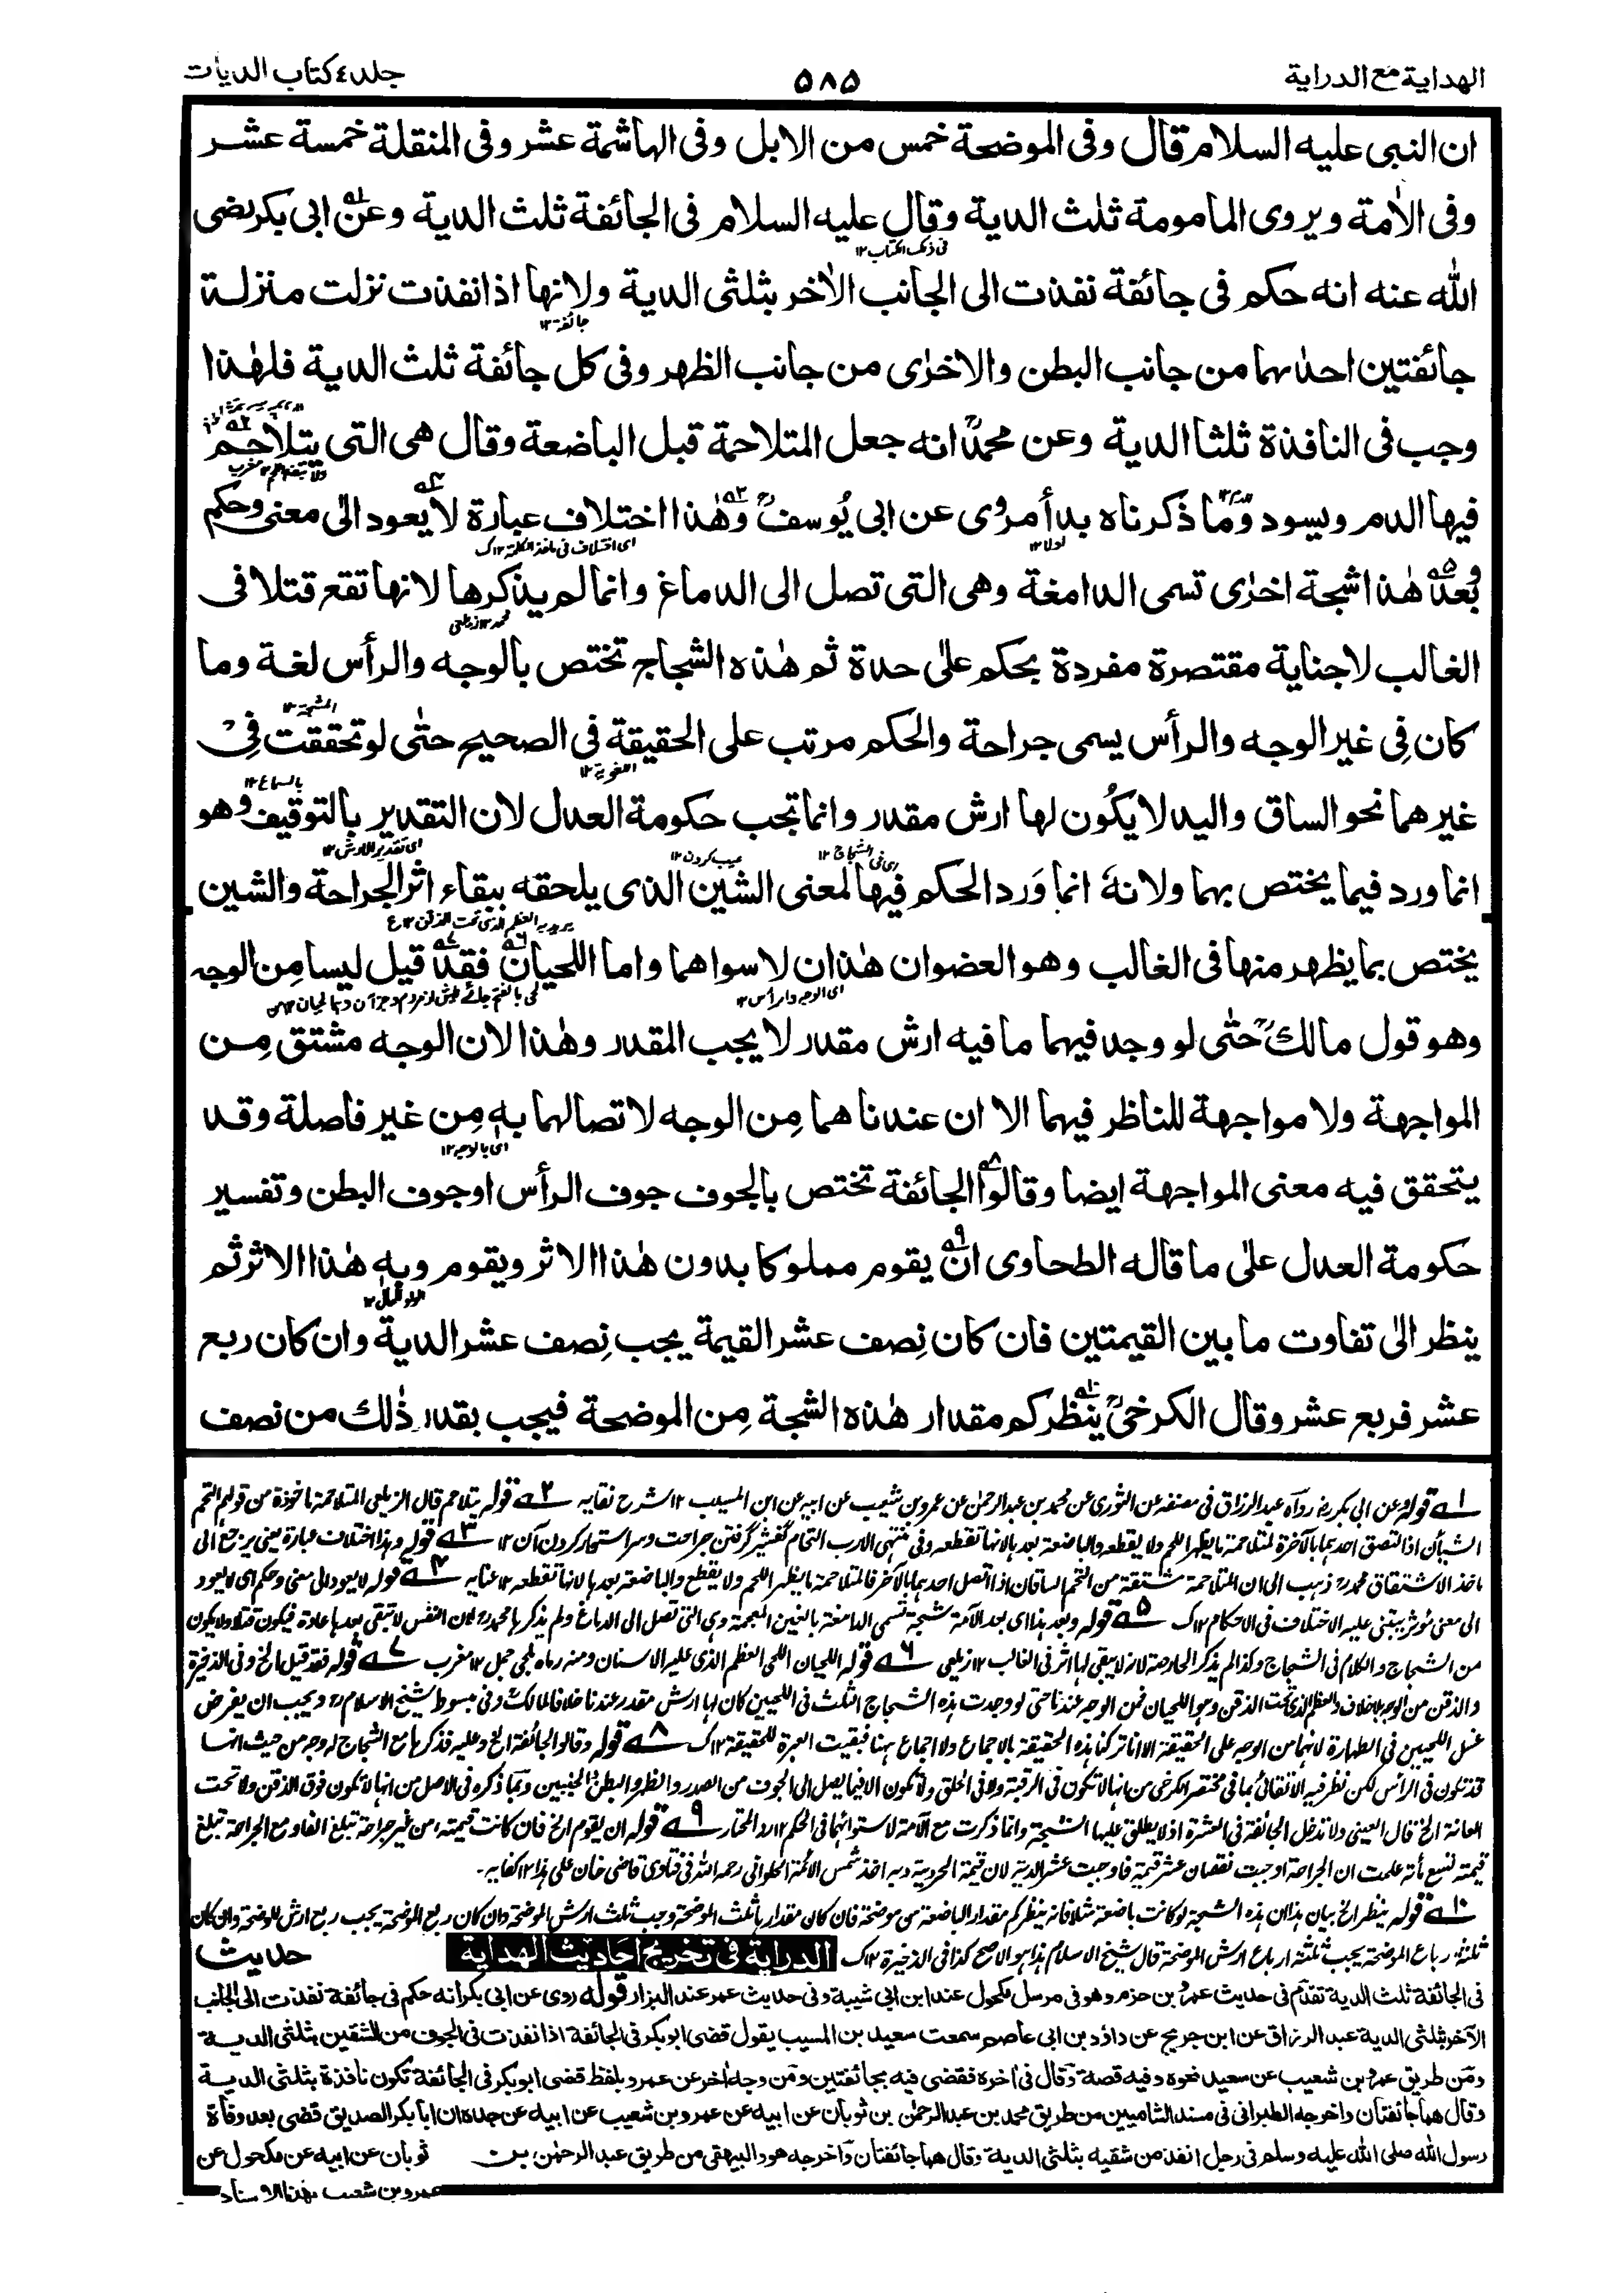 الهداية مع الدراية
۵۸۵
جلد ٤ كتاب الديات
ان النبى عليه السلام قال وفى الموضحة خمس من الابل وفى الهاشمة عشر وفى المنقلة خمسة عشر
وفى الأمة ويروى المامومة ثلث الدية وقال عليه السلام فى الجائفة ثلث الدية وعن ابى بكر رضى
فى ذلك الكتاب ١٢
الله عنه انه حكم فى جائفة نفذت الى الجانب الأخر بثلثى الدية ولانها اذا نفذت نزلت منزلة
جائفة ١٢
جائفتين احدٰهما من جانب البطن والاخرٰى من جانب الظهر وفى كل جائفة ثلث الدية فلهٰذا
وجب فى النافذة ثلثا الدية وعن محمدؒ انه جعل المتلاحمة قبل الباضعة وقال هى التى يتلاحم
فيها الدم ويسود وما ذكرناه بدأ مروى عن ابى يُوسفؒ وهٰذا اختلاف عبارة لا يعود الى معنى وحكم
اولا ١٢
اى اختلاف فى ماخذ الكلمة ١٢ ك
وبعد هٰذا شجة اخرٰى تسمى الدامغة وهى التى تصل الى الدماغ وانما لم يذكرها لانها تقع قتلا فى
محمد ١٢ زيلعى
الغالب لا جناية مقتصرة مفردة بحكم علٰى حدة ثم هٰذه الشجاج تختص بالوجه والرأس لغة وما
كان فِى غير الوجه والرأس يسمى جراحة والحكم مرتب على الحقيقة فى الصحيح حتٰى لو تحققت فِى
الشجة ١٢
اللغوية ١٢
غيرهما نحو الساق واليد لا يكُون لها ارش مقدر وانما تجب حكومة العدل لان التقدير بالتوقيف وهو
بالسماع ١٢
اى تقدير الارش ١٢
انما ورد فيما يختص بهما ولانهٗ انما وَرد الحكم فيها لمعنى الشين الذى يلحقه ببقاء اثر الجراحة والشين
اى فى الشجاج ١٢
عيب كردن ١٢
يريد به العظم الذى تحت الذقن ١٢ ع
يختص بما يظهر منها فى الغالب وهو العضوان هٰذان لا سواهما واما اللحيان فقد قيل ليسا مِن الوجه
اى الوجه والرأس ١٢
وهو قول مالكؒ حتٰى لو وجد فيهما ما فيه ارش مقدر لا يجب المقدر وهٰذا لان الوجه مشتق مِن
المواجهة ولا مواجهة للناظر فيهما الا ان عندنا هما مِن الوجه لاتصالهما بهٖ مِن غير فاصلة وقد
اى بالوجه ١٢
يتحقق فيه معنى المواجهة ايضا وقالوا الجائفة تختص بالجوف جوف الرأس او جوف البطن وتفسير
حكومة العدل علٰى ما قاله الطحاوى ان يقوم مملوكا بدون هٰذا الاثر ويقوم وبهٖ هٰذا الاثر ثم
الواو للحال ١٢
ينظر الٰى تفاوت ما بين القيمتين فان كان نِصف عشر القيمة يجب نِصف عشر الدية وان كان ربع
عشر فربع عشر وقال الكرخىؒ ينظر كم مقدار هٰذه الشجة مِن الموضحة فيجب بقدر ذٰلك من نصف
١ قوله وعن ابى بكر رض رواه عبد الرزاق فى مصنفه عن الثورى عن محمد بن عبد الرحمٰن عن عمرو بن شعيب عن ابيه عن ابن المسيب ١٢ شرح نقايه ٢ قوله يتلاحم قال الزيلعى المتلاحمة ماخوذة من قولهم التحم
الشيأن اذا التصق احدهما بالآخر فالمتلاحمة ما يظهر اللحم ولا يقطعه والباضعة بعدها لانها تقطعه وفى منتهى الارب التحام گفشير گرفتن جراحت وسر استوار كردن آن ١٢ ٣ قوله وهذا اختلاف عبارة يعنى يرجع الى
ماخذ الاشتقاق محمد رح ذهب الى ان المتلاحمة مشتقة من التحم الساقان اذا اتصل احدهما بالآخر فالمتلاحمة ما يظهر اللحم ولا يقطع والباضعة بعدها لانها تقطعه ١٢ عنايه ٤ قوله لا يعود الى معنى وحكم اى لا يعود
الى معنى مؤثر يبتنى عليه الاختلاف فى الاحكام ١٢ ك ٥ قوله وبعد هذا اى بعد الآمة شجة تسمى الدامغة بالغين المعجمة وهى التى تصل الى الدماغ ولم يذكرها محمد رح لان النفس لا تبقى بعدها عادة فيكون قتلا ولا يكون
من الشجاج والكلام فى الشجاج وكذا لم يذكر الحارصة لانه لا يبقى لها اثر فى الغالب ١٢ زيلعى ٦ قوله اللحيان اللحى العظم الذى عليه الاسنان ومنه رماه بلحى جمل ١٢ مغرب ٧ قوله فقد قيل الخ وفى الذخيرة
والذقن من الوجه بلا خلاف والعظم الذى تحت الذقن وهو اللحيان فمن الوجه عندنا حتى لو وجدت هذه الشجاج الثلث فى اللحيين كان لها ارش مقدر عندنا خلافا لمالكؒ وفى مبسوط شيخ الاسلام رح ويجب ان يفرض
غسل اللحيين فى الطهارة لانهما من الوجه على الحقيقة الا انا تركنا هذه الحقيقة بالاجماع ولا اجماع ههنا فبقيت العبرة للحقيقة ١٢ ك ٨ قوله وقالوا الجائفة الخ وعليه فذكرها مع الشجاج له وجه من حيث انها
قد تكون فى الرأس لكن نظر فيه الاتقانى بما فى مختصر الكرخى من انها لا تكون فى الرقبة ولا فى الحلق ولا تكون الا فيما يصل الى الجوف من الصدر والظهر والبطن والجنبين وبما ذكره فى الاصل من انها لا تكون فوق الذقن ولا تحت
العانة الخ قال العينى ولا تدخل الجائفة فى العشرة اذ لا يطلق عليها الشجة وانما ذكرت مع الآمة لاستوائهما فى الحكم ١٢ رد المحتار ٩ قوله ان يقوم الخ فان كانت قيمته من غير جراحة تبلغ الفا ومع الجراحة تبلغ
قيمته تسع مأئة علمت ان الجراحة اوجبت نقصان عشر قيمة فاوجبت عشر الدية لان قيمة الحر دية وبه اخذ شمس الائمة الحلوانى رحمه الله فى فتاوى قاضى خان على هذا ١٢ كفايه۔
١٠ قوله ينظر الخ بيان هذا ان هذه الشجة لو كانت باضعة مثلا فانه ينظر كم مقدار الباضعة من موضحة فان كان مقدارها ثلث الموضحة وجب ثلث ارش الموضحة وان كان ربع الموضحة يجب ربع ارش الموضحة وان كان
ثلثة ارباع الموضحة يجب ثلثة ارباع ارش الموضحة قال شيخ الاسلام هذا هو الاصح كذا فى الذخيرة ١٢ ك الدراية فى تخريج احاديث الهداية حديث
فى الجائفة ثلث الدية تقدم فى حديث عمرو بن حزم وهو فى مرسل مكحول عند ابن ابى شيبة وفى حديث عمر عند البزار قوله روى عن ابى بكر انه حكم فى جائفة نفذت الى الجانب
الآخر بثلثى الدية عبد الرزاق عن ابن جريج عن داؤد بن ابى عاصم سمعت سعيد بن المسيب يقول قضى ابو بكر فى الجائفة اذا نفذت فى الجوف من الشقين بثلثى الدية
ومن طريق عمرو بن شعيب عن سعيد نحوه وفيه قصة وقال فى اخره فقضى فيه بجائفتين ومن وجه اخر عن عمرو بلفظ قضى ابو بكر فى الجائفة تكون نافذة بثلثى الدية
وقال هما جائفتان واخرجه الطبرانى فى مسند الشاميين من طريق محمد بن عبد الرحمٰن بن ثوبان عن ابيه عن عمرو بن شعيب عن ابيه عن جده ان ابا بكر الصديق قضى بعد وفاة
رسول الله صلى الله عليه وسلم فى رجل انفذ من شقيه بثلثى الدية وقال هما جائفتان واخرجه هو والبيهقى من طريق عبد الرحمٰن بن ثوبان عن ابيه عن مكحول عن
عمرو بن شعيب بهذا الاسناد